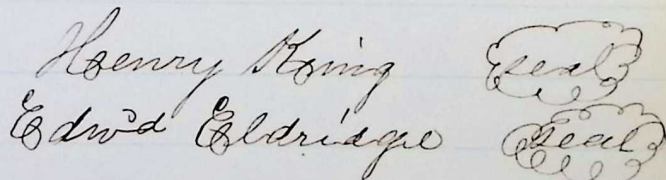 Henry King seal
Edwd Eldridge seal